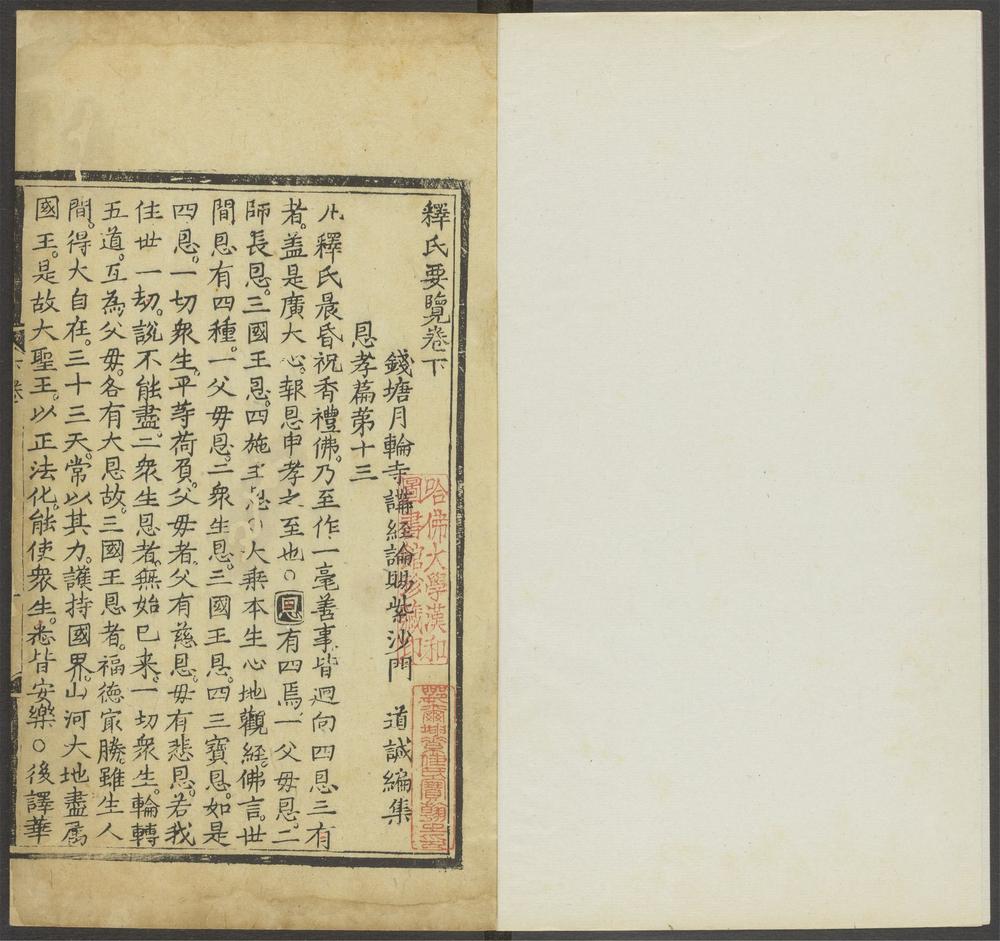 釋氏要覽卷下
錢塘月輪寺講經論賜紫沙門 道誠編集
恩孝篇第十三
凡釋氏晨昏祝香禮佛。乃至作一毫善事。皆迴向四恩三有
者。盖是廣大心。報恩申孝之至也○恩有四焉。一父母恩。二
師長恩。三國王恩。四施主恩○大乘本生心地觀經。佛言。世
間恩有四種。一父母恩。二衆生恩。三國王恩。四三寶恩。如是
四恩。一切衆生。平等荷負。父母者。父有慈恩。母有悲恩。若我
住世一劫。說不能盡。二衆生恩者。無始已来。一切衆生。輪轉
五道。互為父母。各有大恩故。三國王恩者。福德冣勝。雖生人
間。得大自在。三十三天。常以其力。護持國界。山河大地。盡屬
國王。是故大聖王。以正法化。能使衆生。悉皆安樂○後譯華
下卷
哈佛大學漢和
圖書舘珍藏印